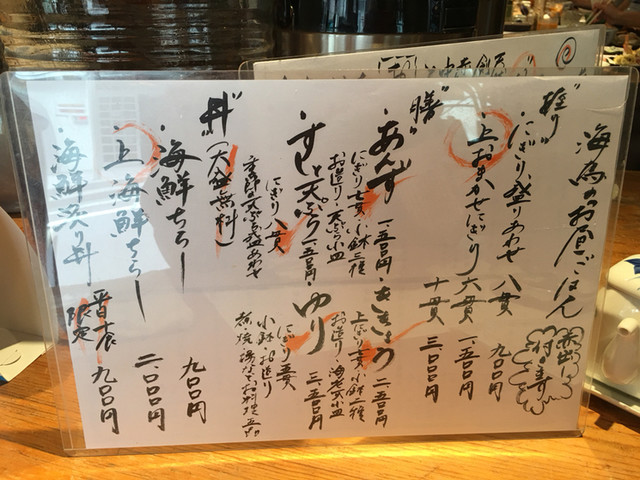 海鳥のお昼ごはん
赤出し付きます
"握り"
・にぎり盛りあわせ 八貫 九〇〇円
・上おまかせにぎり 六貫 一.五〇〇円
十貫 三.〇〇〇円
"膳"
・あんず 一.五〇〇円
にぎり七貫・小鉢二種
お造り・天ぷら小皿
・すしと天ぷら 一.五〇〇円
にぎり八貫
天ぷら盛あわせ
・ききょう 二.五〇〇円
上にぎり七貫・小鉢二種
お造り・海老天小皿
・ゆり 三.五〇〇円
にぎり五貫
小鉢・お造り
"丼"(大盛無料)
・海鮮ちらし 九〇〇円
・上海鮮ちらし 二.〇〇〇円
・海鮮添り丼 限定 九〇〇円